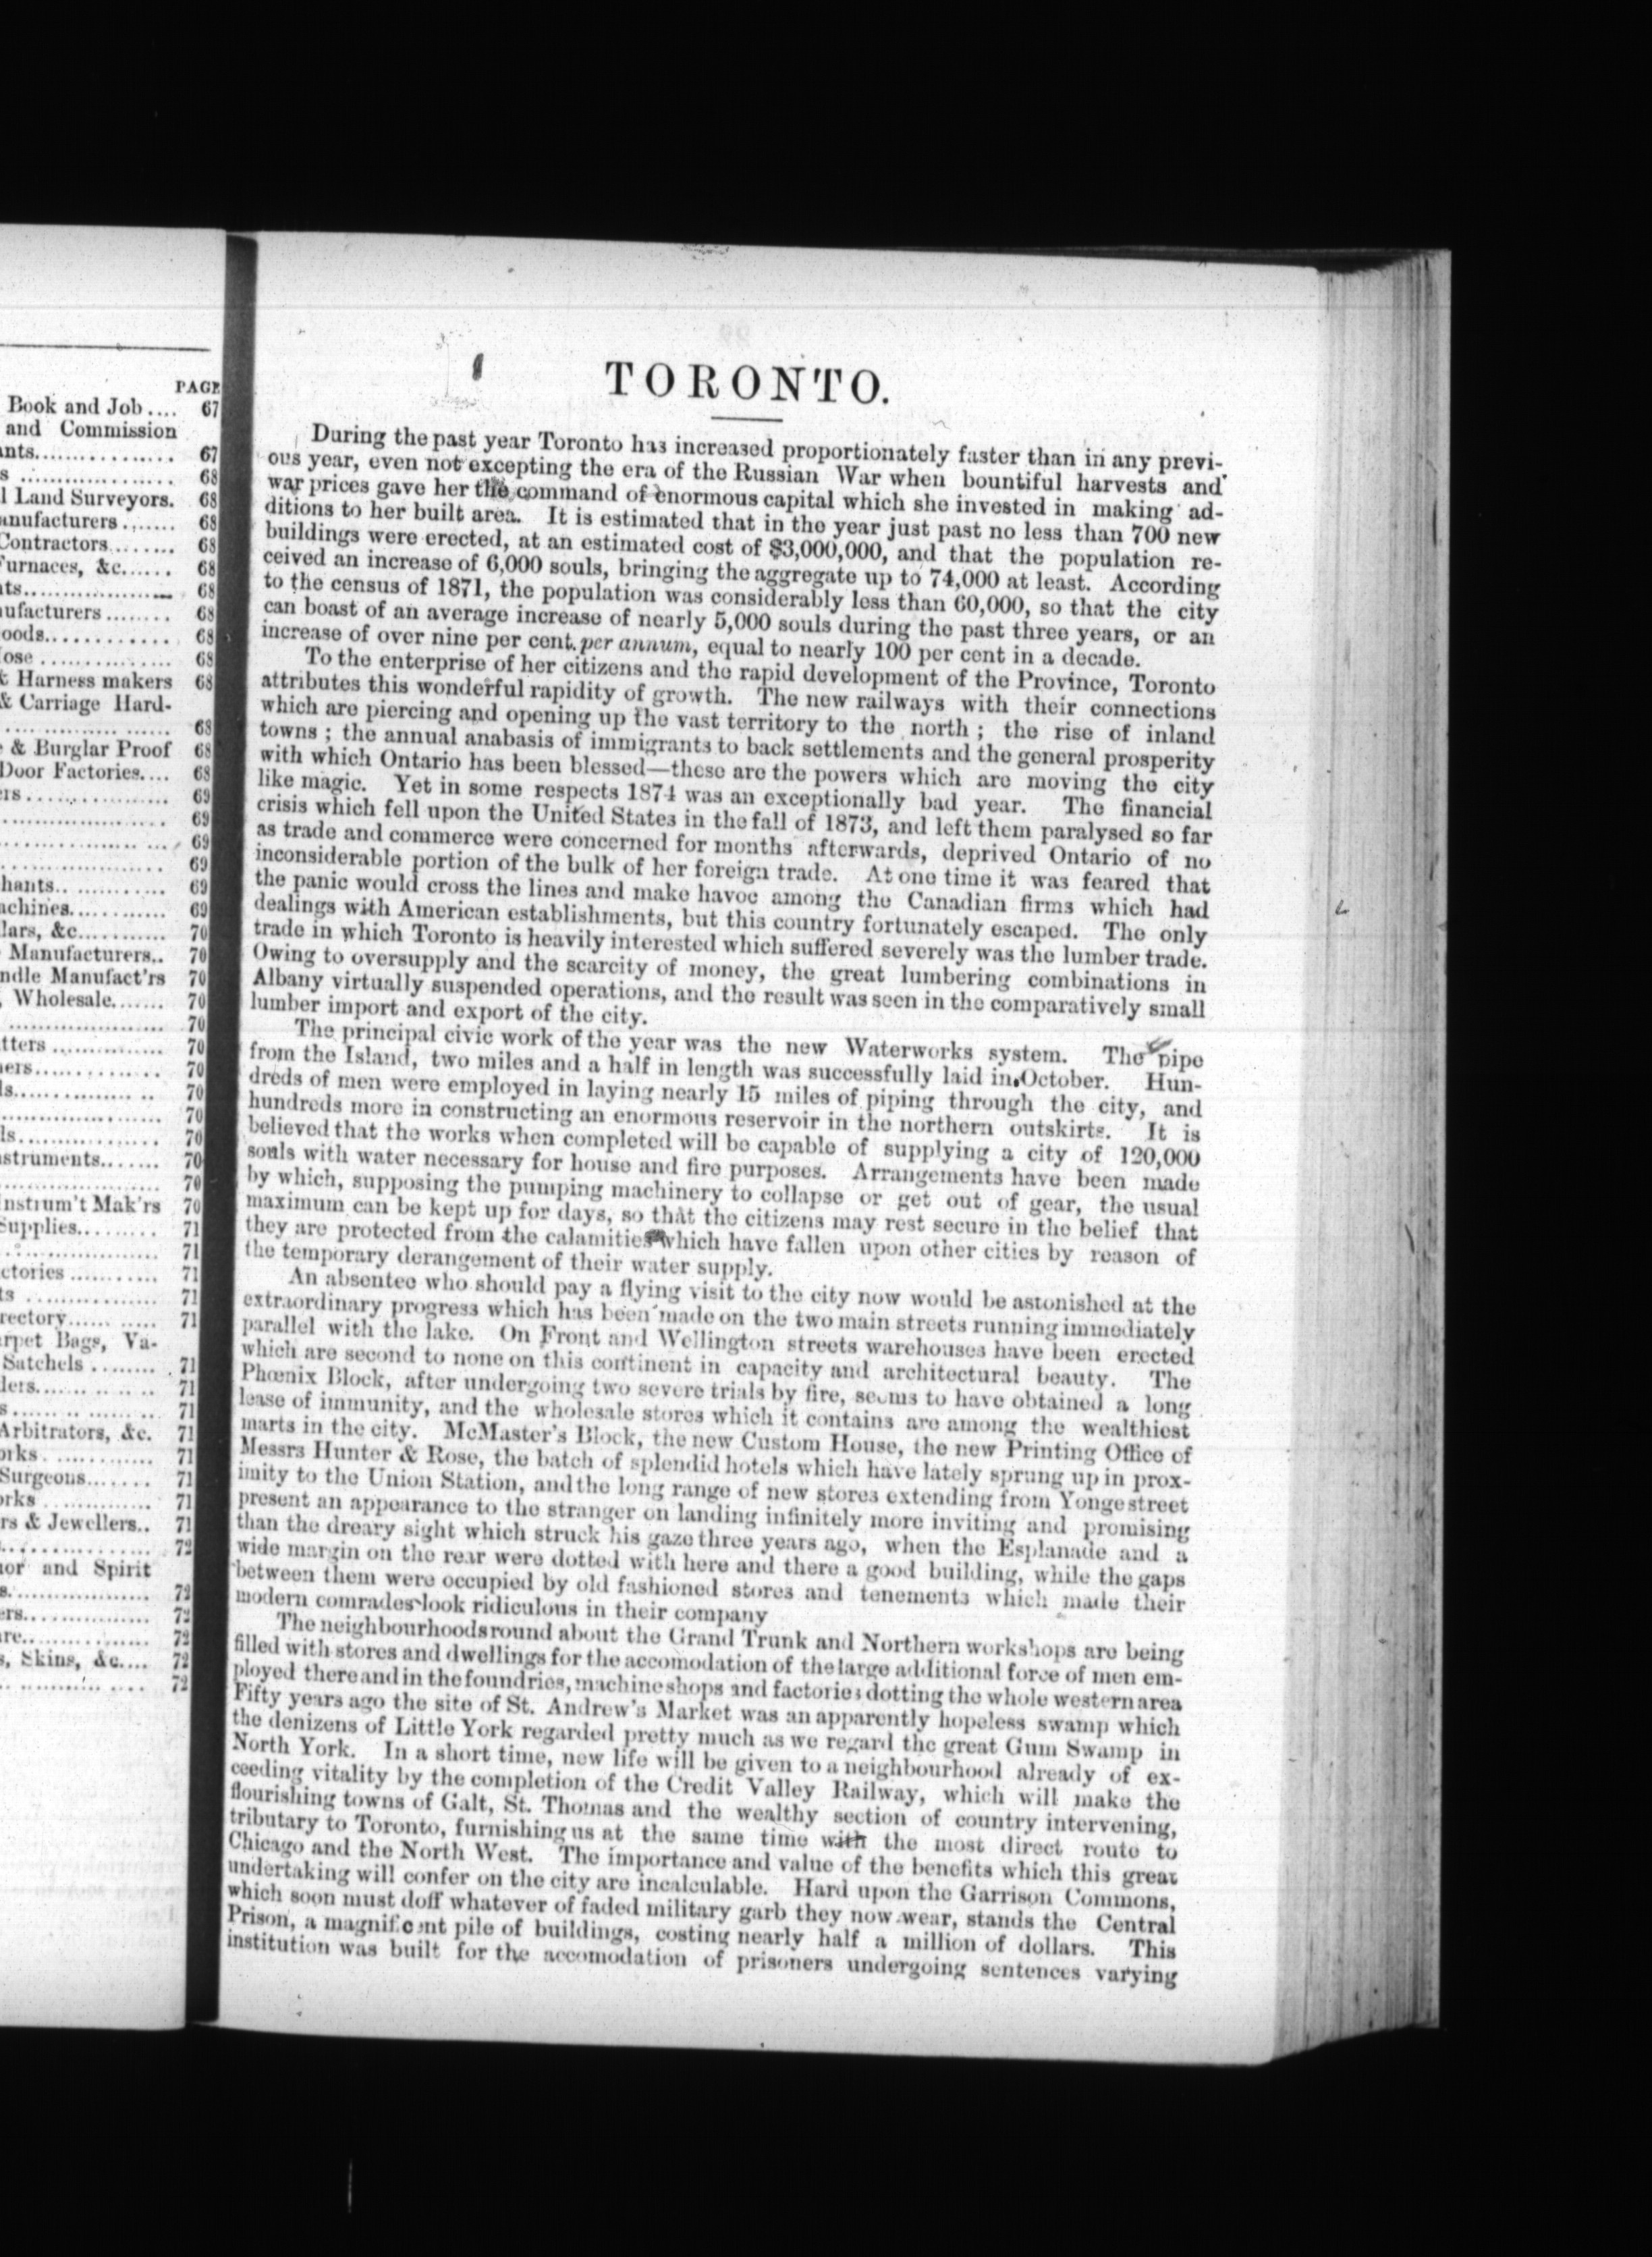 PAGE
Book and Job.... 67
and Commission
ants............... 67
s .................. 68
l Land Surveyors. 68
anufacturers ....... 68
Contractors........ 68
Furnaces, &c...... 68
nts.................... 68
nufacturers ........ 68
oods............ 68
ose ............... 68
& Harness makers 68
& Carriage Hard-
.................... 68
& Burglar Proof 68
Door Factories.... 68
ers................. 69
.................... 69
.................... 69
.................... 69
hants.............. 69
achines............ 69
lars, &c........... 70
Manufacturers.. 70
ndle Manufact'rs 70
, Wholesale....... 70
.................... 70
tters .............. 70
ers............. 70
ls................ 70
.................... 70
ls................ 70
struments....... 70
.................... 70
nstrum't Mak'rs 70
Supplies......... 71
.................... 71
ctories ........... 71
ts ................ 71
rectory............ 71
arpet Bags, Va-
Satchels ........ 71
lers............... 71
s................. 71
Arbitrators, &c. 71
orks ............. 71
Surgeons....... 71
orks ............. 71
rs & Jewellers.. 71
.................. 72
uor and Spirit
s.................. 72
ers................ 72
are................ 72
s, Skins, &c.... 72
.................. 72
TORONTO.
During the past year Toronto has increased proportionately faster than in any previ-
ous year, even not excepting the era of the Russian War when bountiful harvests and
war prices gave her the command of enormous capital which she invested in making ad-
ditions to her built area. It is estimated that in the year just past no less than 700 new
buildings were erected, at an estimated cost of $3,000,000, and that the population re-
ceived an increase of 6,000 souls, bringing the aggregate up to 74,000 at least. According
to the census of 1871, the population was considerably less than 60,000, so that the city
can boast of an average increase of nearly 5,000 souls during the past three years, or an
increase of over nine per cent. per annum, equal to nearly 100 per cent in a decade.
To the enterprise of her citizens and the rapid development of the Province, Toronto
attributes this wonderful rapidity of growth. The new railways with their connections
which are piercing and opening up the vast territory to the north ; the rise of inland
towns ; the annual anabasis of immigrants to back settlements and the general prosperity
with which Ontario has been blessed—these are the powers which are moving the city
like magic. Yet in some respects 1874 was an exceptionally bad year. The financial
crisis which fell upon the United States in the fall of 1873, and left them paralysed so far
as trade and commerce were concerned for months afterwards, deprived Ontario of no
inconsiderable portion of the bulk of her foreign trade. At one time it was feared that
the panic would cross the lines and make havoc among the Canadian firms which had
dealings with American establishments, but this country fortunately escaped. The only
trade in which Toronto is heavily interested which suffered severely was the lumber trade.
Owing to oversupply and the scarcity of money, the great lumbering combinations in
Albany virtually suspended operations, and the result was seen in the comparatively small
lumber import and export of the city.
The principal civic work of the year was the new Waterworks system. The pipe
from the Island, two miles and a half in length was successfully laid in October. Hun-
dreds of men were employed in laying nearly 15 miles of piping through the city, and
hundreds more in constructing an enormous reservoir in the northern outskirts. It is
believed that the works when completed will be capable of supplying a city of 120,000
souls with water necessary for house and fire purposes. Arrangements have been made
by which, supposing the pumping machinery to collapse or get out of gear, the usual
maximum can be kept up for days, so that the citizens may rest secure in the belief that
they are protected from the calamities which have fallen upon other cities by reason of
the temporary derangement of their water supply.
An absentee who should pay a flying visit to the city now would be astonished at the
extraordinary progress which has been made on the two main streets running immediately
parallel with the lake. On Front and Wellington streets warehouses have been erected
which are second to none on this continent in capacity and architectural beauty. The
Phœnix Block, after undergoing two severe trials by fire, seems to have obtained a long
lease of immunity, and the wholesale stores which it contains are among the wealthiest
marts in the city. McMaster's Block, the new Custom House, the new Printing Office of
Messrs Hunter & Rose, the batch of splendid hotels which have lately sprung up in prox-
imity to the Union Station, and the long range of new stores extending from Yonge street
present an appearance to the stranger on landing infinitely more inviting and promising
than the dreary sight which struck his gaze three years ago, when the Esplanade and a
wide margin on the rear were dotted with here and there a good building, while the gaps
between them were occupied by old fashioned stores and tenements which made their
modern comrades look ridiculous in their company
The neighbourhoods round about the Grand Trunk and Northern workshops are being
filled with stores and dwellings for the accomodation of the large additional force of men em-
ployed there and in the foundries, machine shops and factories dotting the whole western area
Fifty years ago the site of St. Andrew's Market was an apparently hopeless swamp which
the denizens of Little York regarded pretty much as we regard the great Gum Swamp in
North York. In a short time, new life will be given to a neighbourhood already of ex-
ceeding vitality by the completion of the Credit Valley Railway, which will make the
flourishing towns of Galt, St. Thomas and the wealthy section of country intervening,
tributary to Toronto, furnishing us at the same time with the most direct route to
Chicago and the North West. The importance and value of the benefits which this great
undertaking will confer on the city are incalculable. Hard upon the Garrison Commons,
which soon must doff whatever of faded military garb they now wear, stands the Central
Prison, a magnificent pile of buildings, costing nearly half a million of dollars. This
institution was built for the accomodation of prisoners undergoing sentences varying